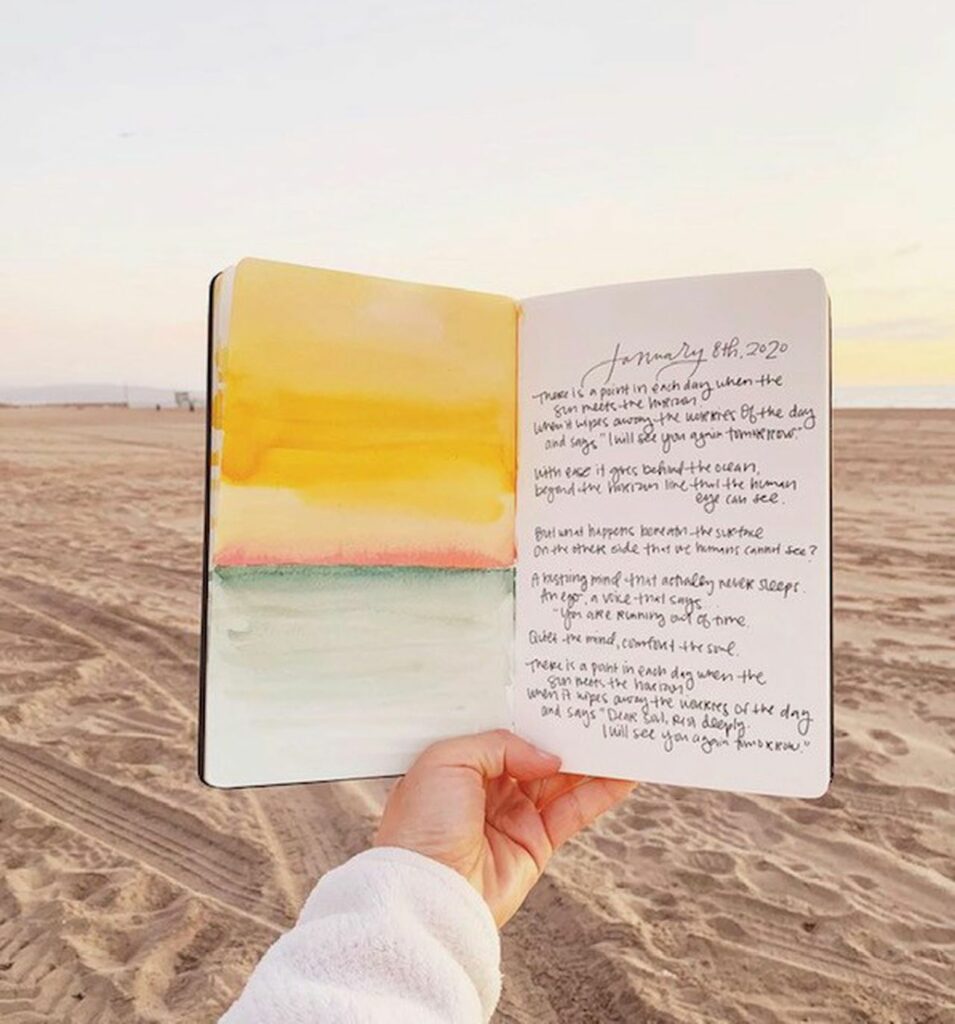 January 8th, 2020
There is a point in each day when the
sun meets the horizon
When it wipes away the worries of the day
and says "I will see you again tomorrow."
With ease it goes behind the ocean,
beyond the horizon line that the human
eye can see.
But what happens beneath the surface
On the other side that we humans cannot see?
A bustling mind that actually never sleeps.
An ego, a voice that says
"You are running out of time.
Quiet the mind, comfort the soul.
There is a point in each day when the
sun meets the horizon
When it wipes away the worries of the day
and says "Dear Soul, Rest deeply.
I will see you again tomorrow."